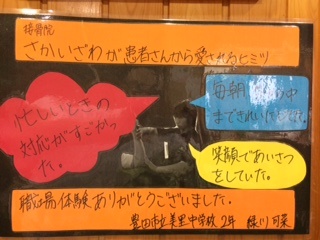 接骨院
さかいざわが患者さんから愛されるヒミツ
忙しいときの
対応がすごかっ
た。
毎朝 の中
まできれいにしてた。
笑顔であいさつ
をしていた。
職場体験ありがとうございました。
豊田市立美里中学校 2年